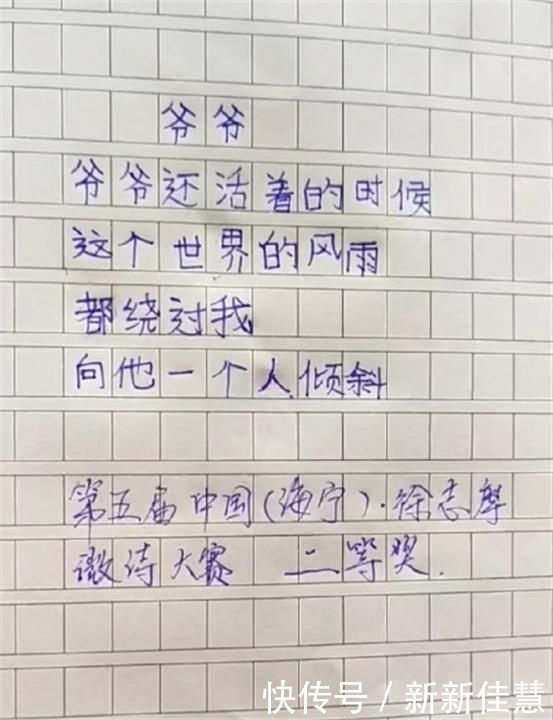 爷爷
爷爷还活着的时候
这个世界的风雨
都绕过我
向他一个人倾斜
第五届中国(海宁)·徐志摩
微诗大赛 二等奖.
快传号/新新佳慧